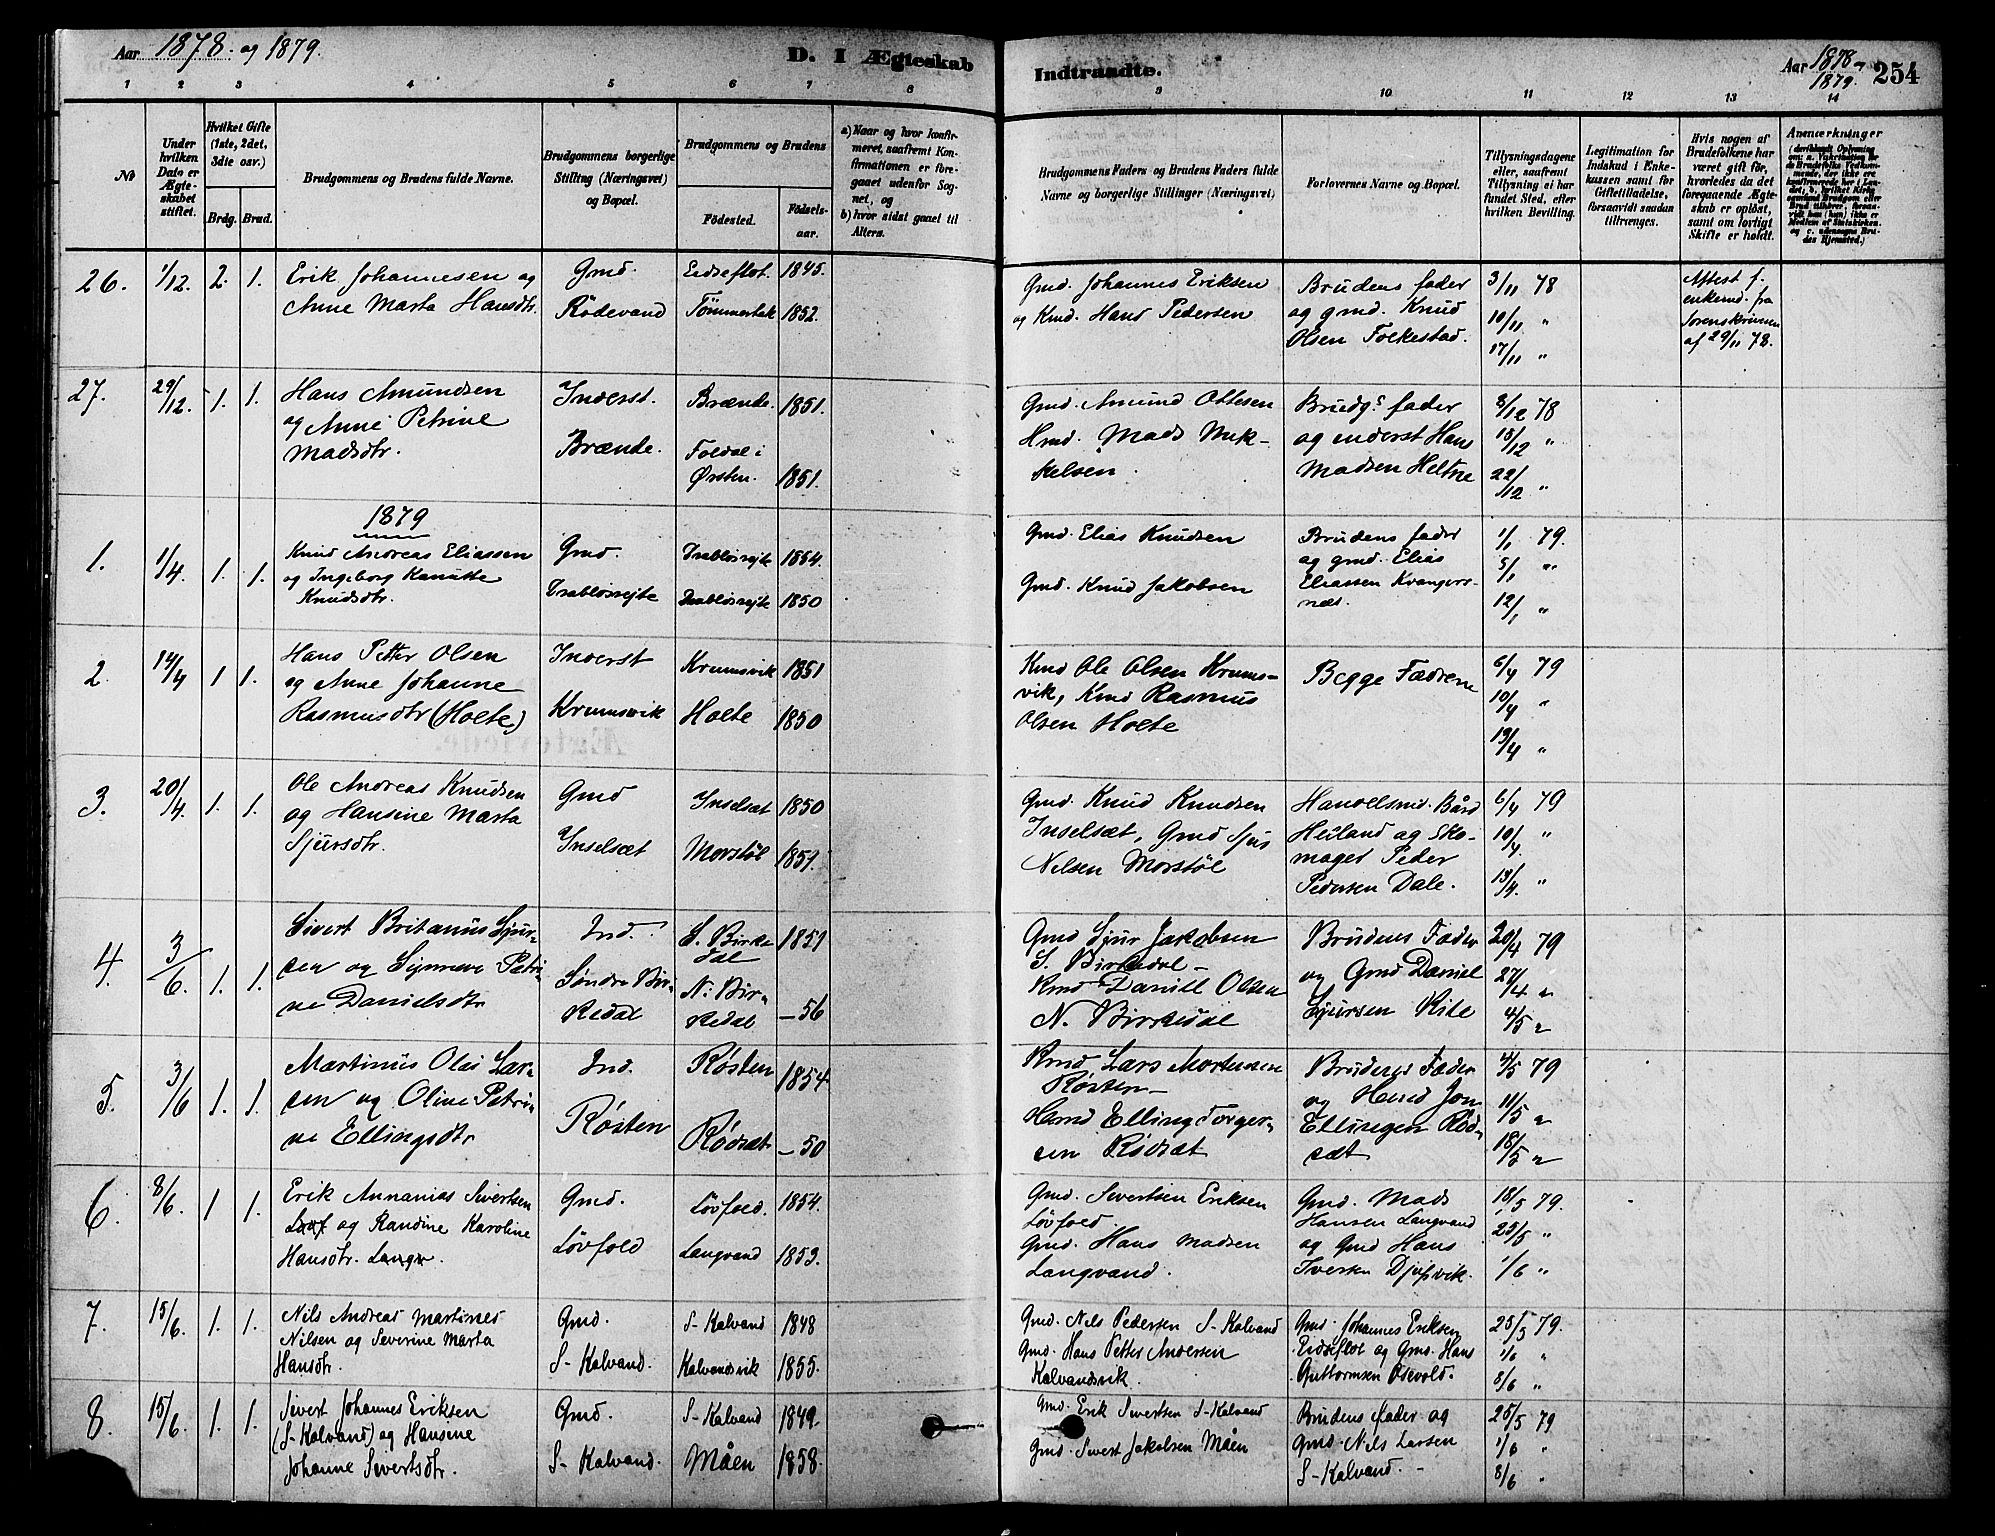 Aar 1878. og 1879.
D. I Ægteskab
Indtraadte.
Aar 1878 og 1879.
254
1 2 3 4 5 6 7 8 9 10 11 12 13 14
No
Under hvilken Dato er Ægteskabet stiftet.
Hvilket Gifte (1ste, 2det, 3die osv.)
Brdg. Brud.
Brudgommens og Brudens fulde Navne.
Brudgommens borgerlige Stilling (Næringsvei) og Bopæl.
Brudgommens og Brudens
Fødested.
Fødselsaar.
a) Naar og hvor konfirmeret, saafremt Konfirmationen er foregaaet udenfor Sognet, og
b) hvor sidst gaaet til Alters.
Brudgommens Faders og Brudens Faders fulde Navne og borgerlige Stillinger (Næringsvei)
Forlovernes Navne og Bopæl.
Tillysningsdagene eller, saafremt Tillysning ei har fundet Sted, efter hvilken Bevilling.
Legitimation for Indskud i Enkekassen samt for Giftetilladelse, forsaavidt saadan tiltrænges.
Hvis nogen af Brudefolkene har været gift før, hvorledes da det foregaaende Ægteskab er opløst, samt om lovligt Skifte er holdt.
Anmærkninger
26. 1/12. 2. 1. Erik Johannesen og Anne Marta Hansdtr.
Gmd. Rødevand
Eidseflot. 1845.
Tømmertak 1852.
Gmd. Johannes Eriksen og Kmd. Hans Pedersen
Brudens fader og gmd. Knud Olsen Folkestad.
3/11 78
10/11 "
17/11 "
Attest f. enkemd. fra Sorenskriveren af 29/11 78.
27. 29/12. 1. 1. Hans Amundsen og Anne Petrine Madsdtr.
Inderst. Brænde.
Brænde. 1851.
Foldal i Ørsten. 1851.
Gmd. Amund Ottesen
Hmd. Mads Mikkelsen.
Brudgs fader og inderst Hans Madsen Heltne
8/12 78
15/12 "
22/12 "
1879
1. 1/4 1. 1. Knud Andreas Eliassen og Ingeborg Kanutte Knudsdtr.
Gmd.
1854.
1850
Gmd. Elias Knudsen
Gmd. Knud Jakobsen
Brudens fader og gmd. Elias Eliassen Kvangersnæs.
1/1 79.
5/1 "
12/1 "
2. 14/4 1 1. Hans Petter Olsen og Anne Johanne Rasmusdtr (Holte)
Inderst Krumsvik
Krumsvik 1851
Holte 1850
Kmd Ole Olsen Krumsvik, Kmd Rasmus Olsen Holte
Begge Fædrene
6/4 79
10/4 "
13/4 "
3. 20/4 1. 1. Ole Andreas Knudsen og Hansine Marta Sjursdtr.
Gmd Inselsæt
Inselsæt 1850
Morstøl 1851.
Gmd. Knud Knudsen Inselsæt, Gmd Sjur Nelsen Morstøl
Handelsmd. Bård Heiland og Skomager Peder Pedersen Dale.
6/4 79
10/4. "
13/4. "
4. 3/6. 1. 1. Sivert Britanus Sjursen og Synneve Petrine Danielsdtr
Ind. Søndre Birkedal
S. Birkedal 1851
N: Birkedal – 56
Gmd Sjur Jakobsen S. Birkedal –
Kmd Daniel Olsen N. Birkedal
Brudens Fader og Gmd Daniel Sjursen Kile
20/4 79
27/4 "
4/5 "
5. 3/6 1. 1. Martinus Olai Larsen og Oline Petrine Ellingsdtr
Ind. Røsten
Røsten 1854
Rødsæt – 50
Kmd Lars Mortensen Røsten –
Hmd Elling Torgersen Rødsæt
Brudens Fader og Hmd Jon Ellingsen Rødsæt
4/5 79
11/5 "
18/5 "
6. 8/6. 1 1. Erik Annanias Sivertsen og Randine Karoline Hansdtr. Langv.
Gmd. Løvfold
Løvfold. 1854.
Langvand 1853.
Gmd. Sivertsen Eriksen Løvfold.
Gmd. Hans Madsen Langvand.
Gmd. Mads Hansen Langvand og Gmd Hans Iversen Djupvik.
18/5 79.
25/5 "
1/6 "
7. 15/6. 1. 1. Nils Andreas Martines Nilsen og Severine Marta Hansdtr.
Gmd. S- Kalvand.
S- Kalvand 1848
Kalvandsvik 1855.
Gmd. Nils Pedersen S- Kalvand
Gmd. Hans Petter Andersen Kalvandsvik.
Gmd. Johannes Eriksen Eidseflot og Gmd. Hans Guttormsen Osevold.
25/5 79.
1/6 "
8/6 "
8. 15/6. 1. 1. Sivert Johannes Eriksen (S- Kalvand) og Hansine Johanne Sivertsdtr.
Gmd. S- Kalvand.
S- Kalvand 1849.
Måen 1858.
Gmd. Erik Sivertsen S- Kalvand
Gmd. Sivert Jakobsen Måen
Brudens fader og Gmd. Nils Larsen S- Kalvand. -
25/5 79
1/6 "
8/6 "